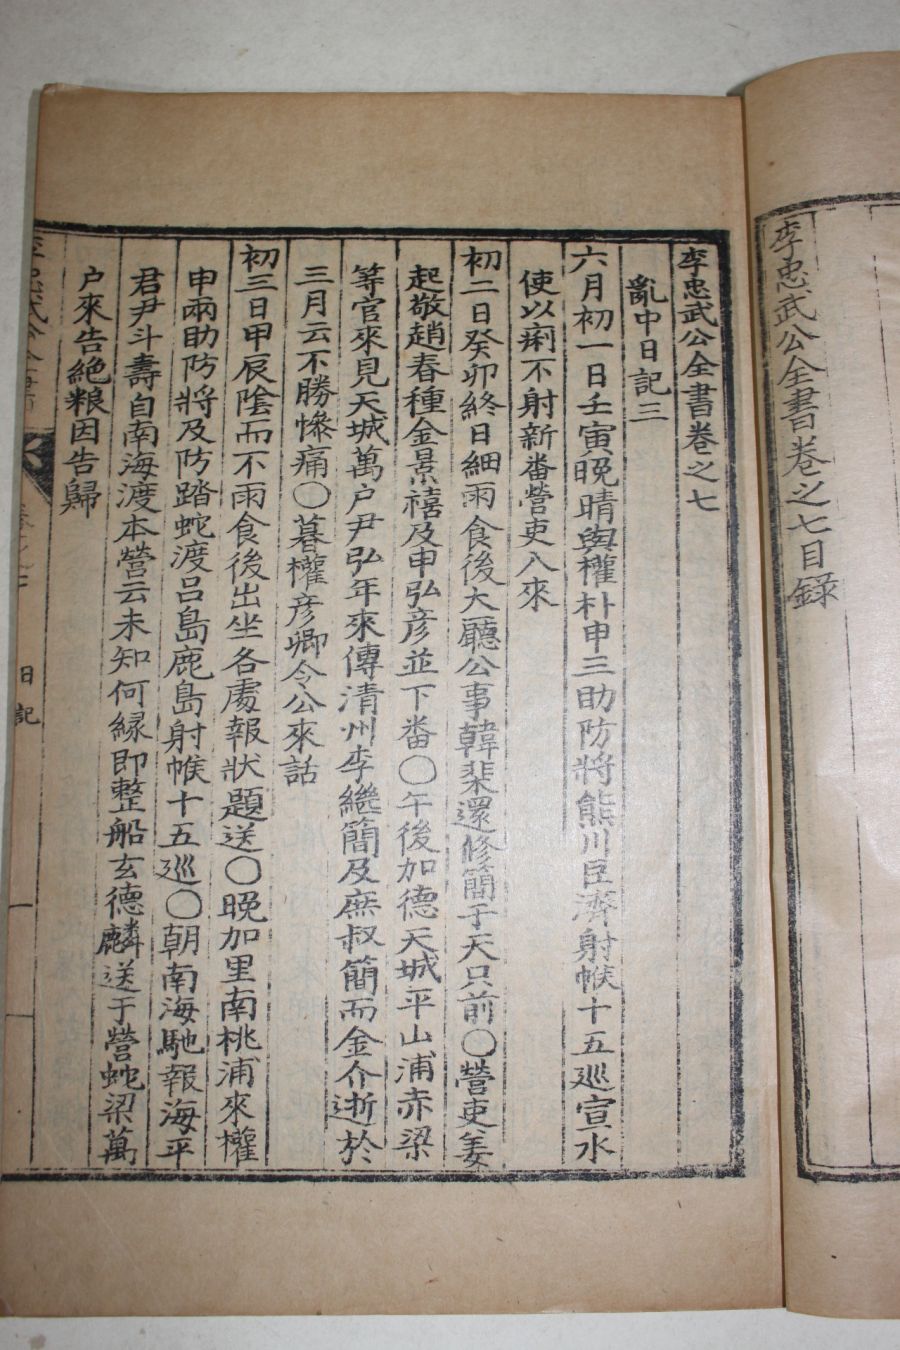 李忠武公全書卷之七目錄
李忠武公全書卷之七
亂中日記三
六月初一日壬寅晩晴與權朴申三助防將熊川巨濟射帿十五巡宣水
使以痢不射新番營吏入來
初二日癸卯終日細雨食後大廳公事韓棐還修簡于天只前〇營吏姜
起敬趙春種金景禧及申弘彦並下番〇午後加德天城平山浦赤梁
等官來見天城萬户尹弘年來傳淸州李繼簡及庶叔簡而金介逝於
三月云不勝慘痛〇暮權彦卿令公來話
初三日甲辰陰而不雨食後出坐各處報狀題送〇晩加里南桃浦來權
申兩助防將及防踏蛇渡呂島鹿島射帿十五巡〇朝南海馳報海平
君尹斗壽自南海渡本營云未知何緣即整船玄德麟送于營蛇梁萬
户來告絶粮因告歸
日記